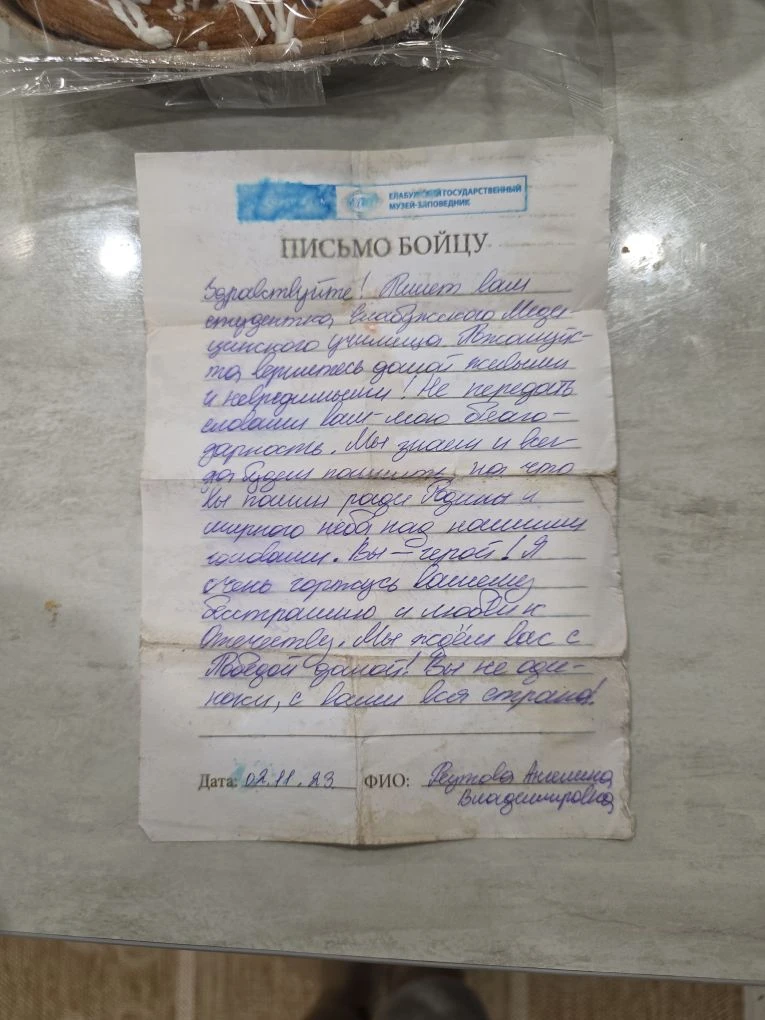 ЕЛАБУЖСКИЙ ГОСУДАРСТВЕННЫЙ
МУЗЕЙ-ЗАПОВЕДНИК
ПИСЬМО БОЙЦУ
Здравствуйте! Пишет вам
студентка Елабужского Меди-
цинского училища. Пожалуйс-
та вернитесь домой живыми
и невредимыми! Не передать
словами вам мою благо-
дарность. Мы знаем и всег-
да будем помнить, на что
Вы пошли ради Родины и
мирного неба над нашими
головами. Вы — герой! Я
очень горжусь вашему
бесстрашию и любви к
Отечеству. Мы ждём вас с
Победой домой! Вы не оди-
ноки, с вами вся страна!
Дата: 02.11.23 ФИО: Ангелина
Владимировна